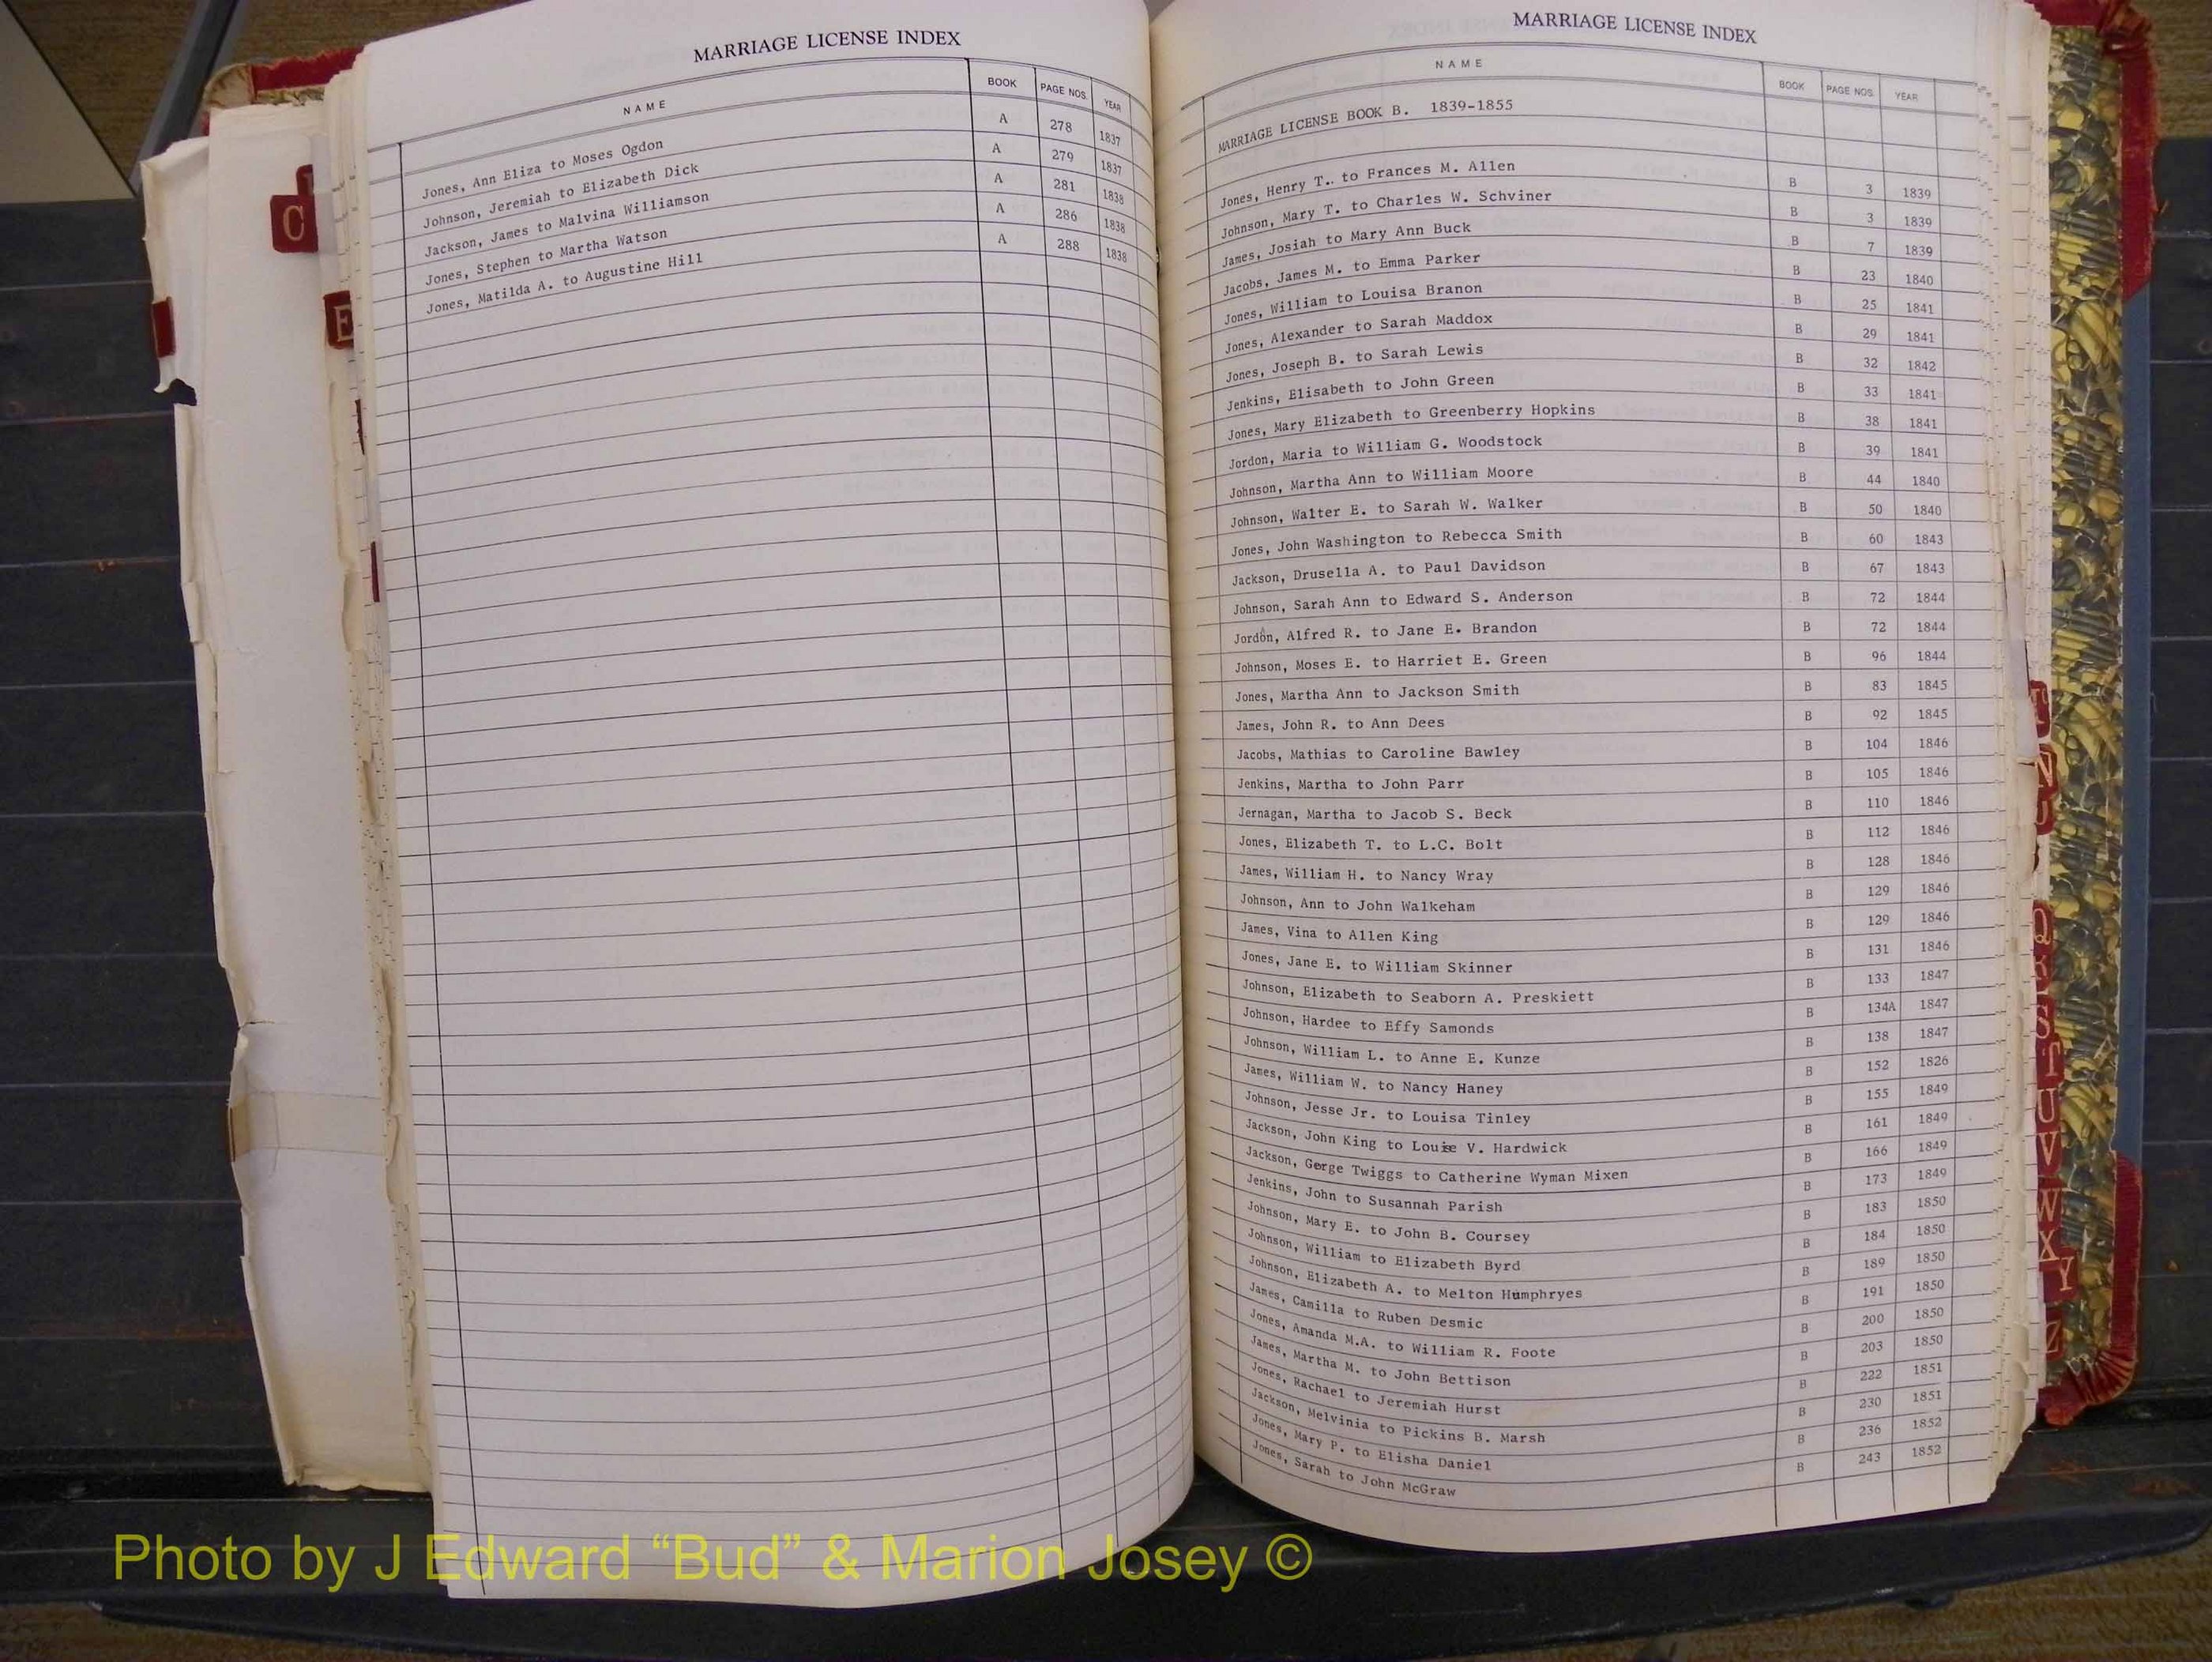 MARRIAGE LICENSE INDEX
NAME BOOK PAGE NOS. YEAR
Jones, Ann Eliza to Moses Ogdon A 278 1837
Johnson, Jeremiah to Elizabeth Dick A 279 1837
Jackson, James to Malvina Williamson A 281 1838
Jones, Stephen to Martha Watson A 286 1838
Jones, Matilda A. to Augustine Hill A 288 1838
MARRIAGE LICENSE INDEX
NAME BOOK PAGE NOS. YEAR
MARRIAGE LICENSE BOOK B. 1839-1855
Jones, Henry T.. to Frances M. Allen B 3 1839
Johnson, Mary T. to Charles W. Schviner B 3 1839
James, Josiah to Mary Ann Buck B 7 1839
Jacobs, James M. to Emma Parker B 23 1840
Jones, William to Louisa Branon B 25 1841
Jones, Alexander to Sarah Maddox B 29 1841
Jones, Joseph B. to Sarah Lewis B 32 1842
Jenkins, Elisabeth to John Green B 33 1841
Jones, Mary Elizabeth to Greenberry Hopkins B 38 1841
Jordon, Maria to William G. Woodstock B 39 1841
Johnson, Martha Ann to William Moore B 44 1840
Johnson, Walter E. to Sarah W. Walker B 50 1840
Jones, John Washington to Rebecca Smith B 60 1843
Jackson, Drusella A. to Paul Davidson B 67 1843
Johnson, Sarah Ann to Edward S. Anderson B 72 1844
Jordon, Alfred R. to Jane E. Brandon B 72 1844
Johnson, Moses E. to Harriet E. Green B 96 1844
Jones, Martha Ann to Jackson Smith B 83 1845
James, John R. to Ann Dees B 92 1845
Jacobs, Mathias to Caroline Bawley B 104 1846
Jenkins, Martha to John Parr B 105 1846
Jernagan, Martha to Jacob S. Beck B 110 1846
Jones, Elizabeth T. to L.C. Bolt B 112 1846
James, William H. to Nancy Wray B 128 1846
Johnson, Ann to John Walkeham B 129 1846
James, Vina to Allen King B 129 1846
Jones, Jane E. to William Skinner B 131 1846
Johnson, Elizabeth to Seaborn A. Preskiett B 133 1847
Johnson, Hardee to Effy Samonds B 134A 1847
Johnson, William L. to Anne E. Kunze B 138 1847
James, William W. to Nancy Haney B 152 1826
Johnson, Jesse Jr. to Louisa Tinley B 155 1849
Jackson, John King to Louise V. Hardwick B 161 1849
Jackson, Gerge Twiggs to Catherine Wyman Mixen B 166 1849
Jenkins, John to Susannah Parish B 173 1849
Johnson, Mary E. to John B. Coursey B 183 1850
Johnson, William to Elizabeth Byrd B 184 1850
Johnson, Elizabeth A. to Melton Humphryes B 189 1850
James, Camilla to Ruben Desmic B 191 1850
Jones, Amanda M.A. to William R. Foote B 200 1850
James, Martha M. to John Bettison B 203 1850
Jones, Rachael to Jeremiah Hurst B 222 1851
Jackson, Melvinia to Pickins B. Marsh B 230 1851
Jones, Mary P. to Elisha Daniel B 236 1852
Jones, Sarah to John McGraw B 243 1852
C
E
Q
S
T
U
V
W
X
Y
Z
Photo by J Edward “Bud” & Marion Josey ©